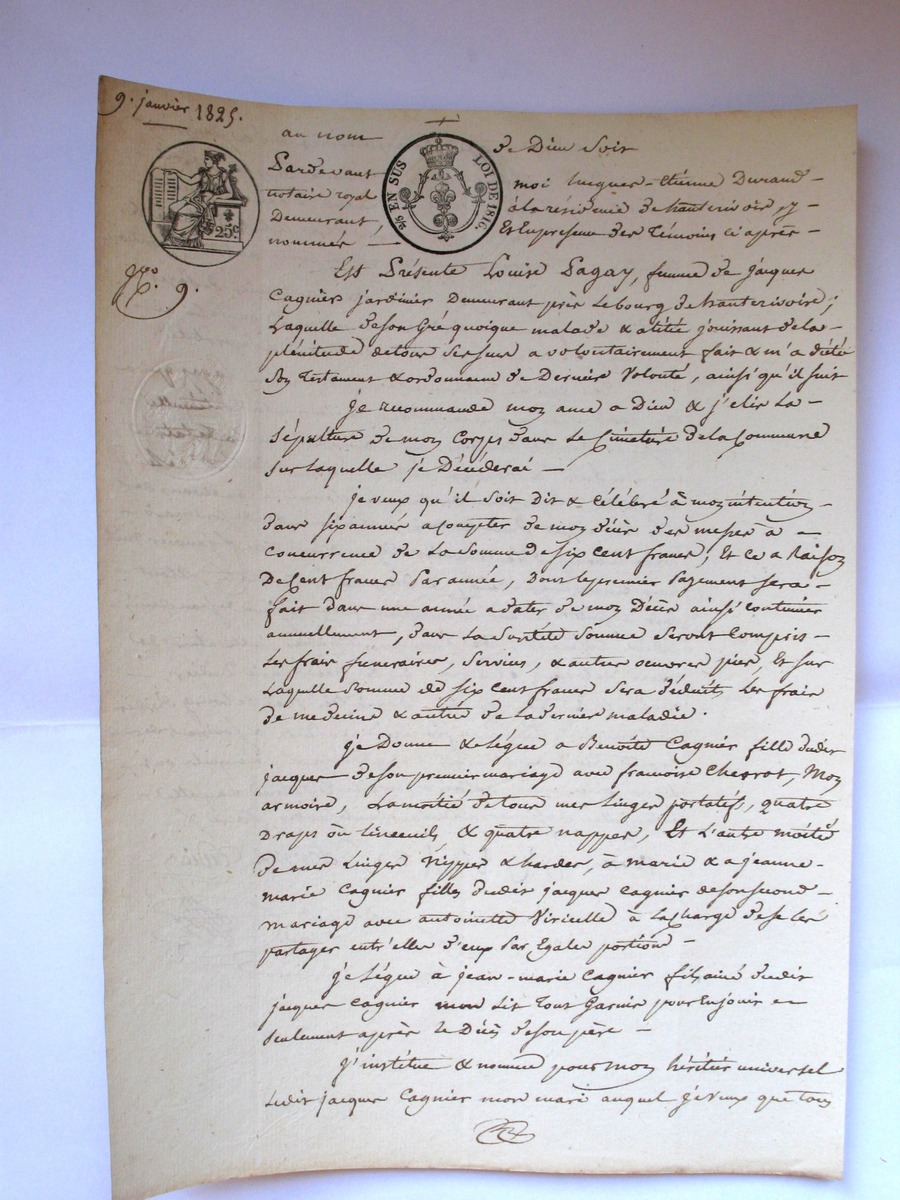 9. janvier 1825.
au nom de Dieu Soit
Pardevant moi hugues-Etienne Durand
notaire royal à la résidence de hauterivoire, y
Demeurant, Et En presence des Témoins ci après
nommés
2/5 EN SUS LOI DE 1816.
25c
No. 9.
Est Présente Louise Pagay, femme de jacques
Cagnier jardinier Demeurant près Lebourg de hauterivoire;
Laquelle de son Gré quoique malade & alitée jouissant de la
plénitude de tous ses sens a volontairement fait & m'a dicté
Son Testament & ordonnance de Derniere Volonté, ainsi qu'il suit
je recommande mon ame a Dieu & j'elis La
Sépulture de mon Corps dans Le Cimetière de la Commune
Sur laquelle je Décéderai —
je veux qu'il Soit Dit & Célébré à mon intention
dans six années a compter de mon décès des messes à
Concurrence de La Somme de six Cent francs, Et ce a Raison
De Cent francs Par année, dont le premier Payement sera
fait dans une année a dater de mon Décès ainsi continuer
annuellement, dans La Susdite Somme Seront Compris
Les frais funeraires, Services, & autres oeuvres pies, Et sur
Laquelle Somme de six Cent francs Sera déduit Les frais
de medecine & autre de La derniere maladie.
je Donne & Légue a Benoite Cagnier fille dudit
jacques de son premier mariage avec francoise Chesrot, Mon
armoire, La moitié de tous mes Linges portatifs, quatre
Draps ou Linceuils & quatre nappes, Et L'autre moitié
de mes Linges Nippes & hardes, à marie & a jeanne
marie Cagnier filles dudit jacques Cagnier de son second
mariage avec antoinette Viricelle à La Charge de se Les
partager entr'elles deux Par Egales portions —
je Légue à jean-marie Cagnier fils ainé dudit
jacques Cagnier mon Lit Tout Garni pour En jouir
seulement après Le Décès de son père —
j'institue & nomme pour mon héritier universel
Ledit jacques Cagnier mon mari auquel je veux que tous